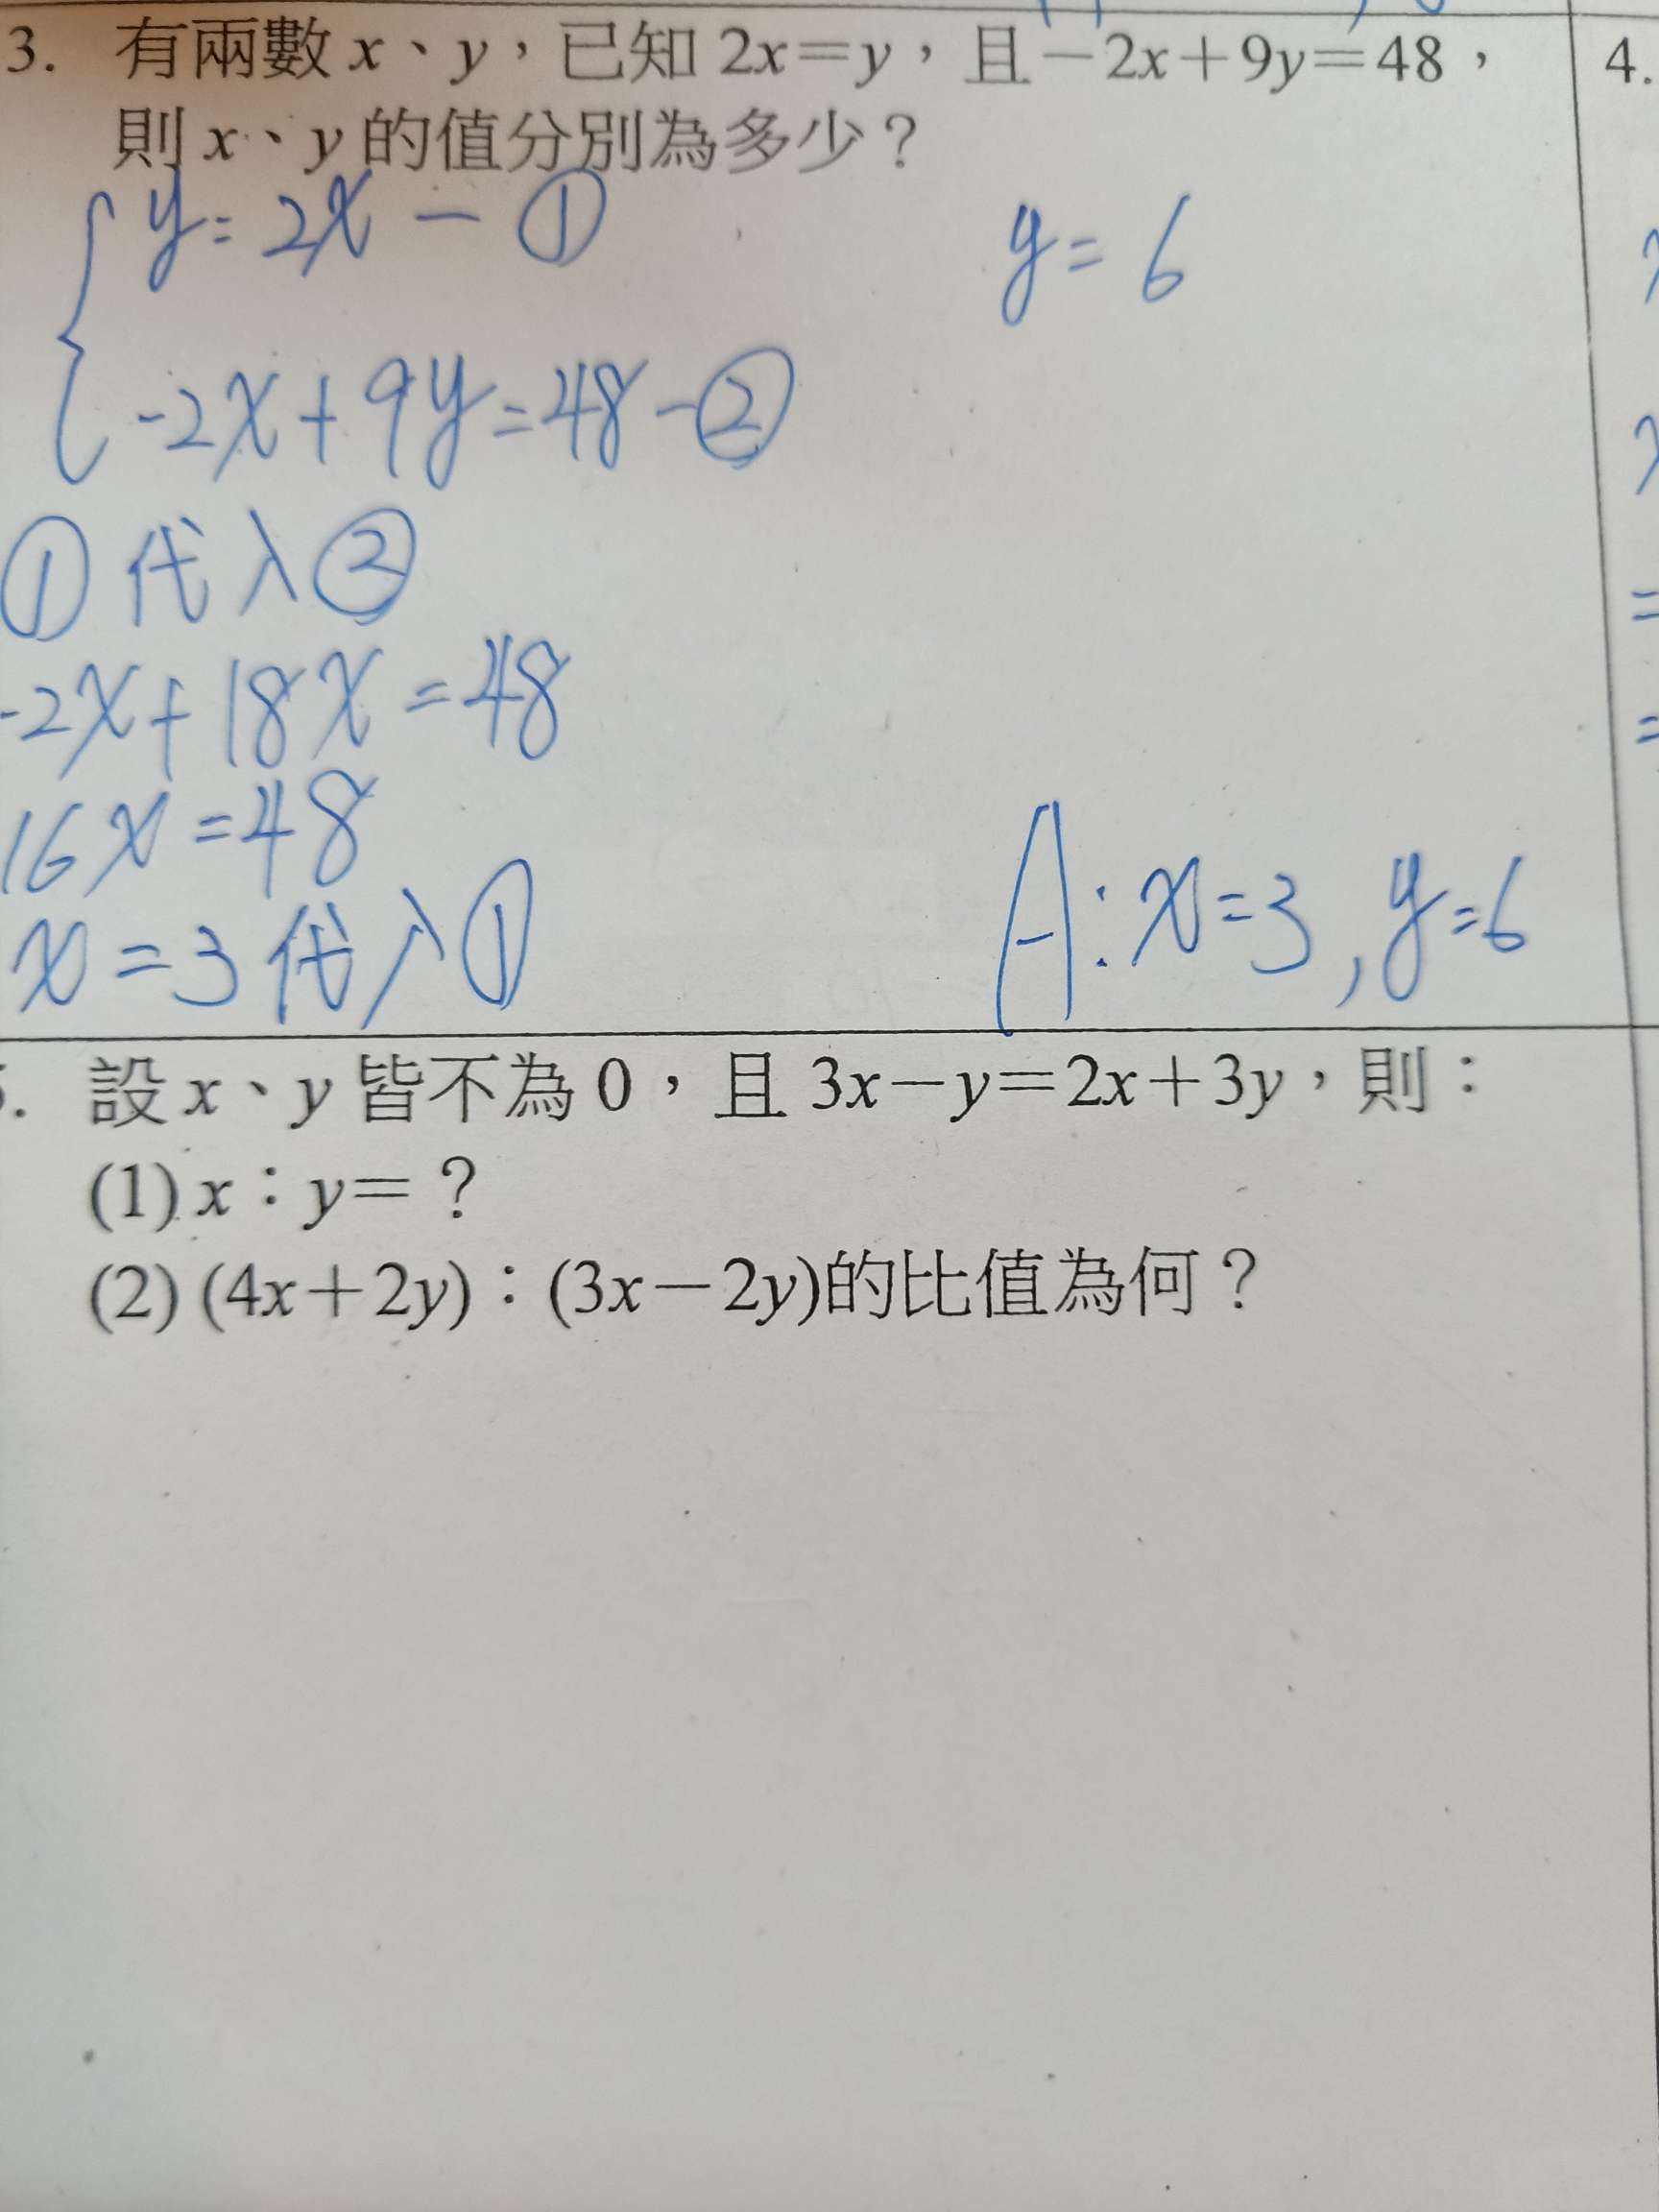 3. 有兩數 x、y，已知 2x＝y，且－2x＋9y＝48，
則 x、y 的值分別為多少？
y=2x-①
-2x+9y=48-②
①代入②
-2x+18x=48
16x=48
x=3代入①
y=6
A:x=3,y=6
4.
設 x、y 皆不為 0，且 3x－y＝2x＋3y，則：
(1) x：y＝？
(2) (4x＋2y)：(3x－2y)的比值為何？